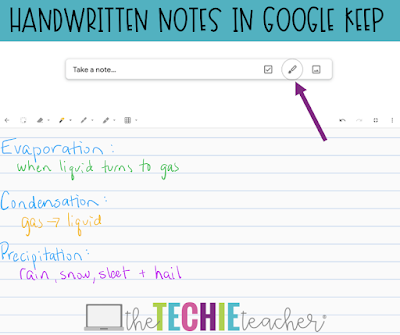 HANDWRITTEN NOTES IN GOOGLE KEEP
Take a note...
Evaporation:
when liquid turns to gas
Condensation:
gas → liquid
Precipitation:
rain, snow, sleet + hail
the TECHIE teacher